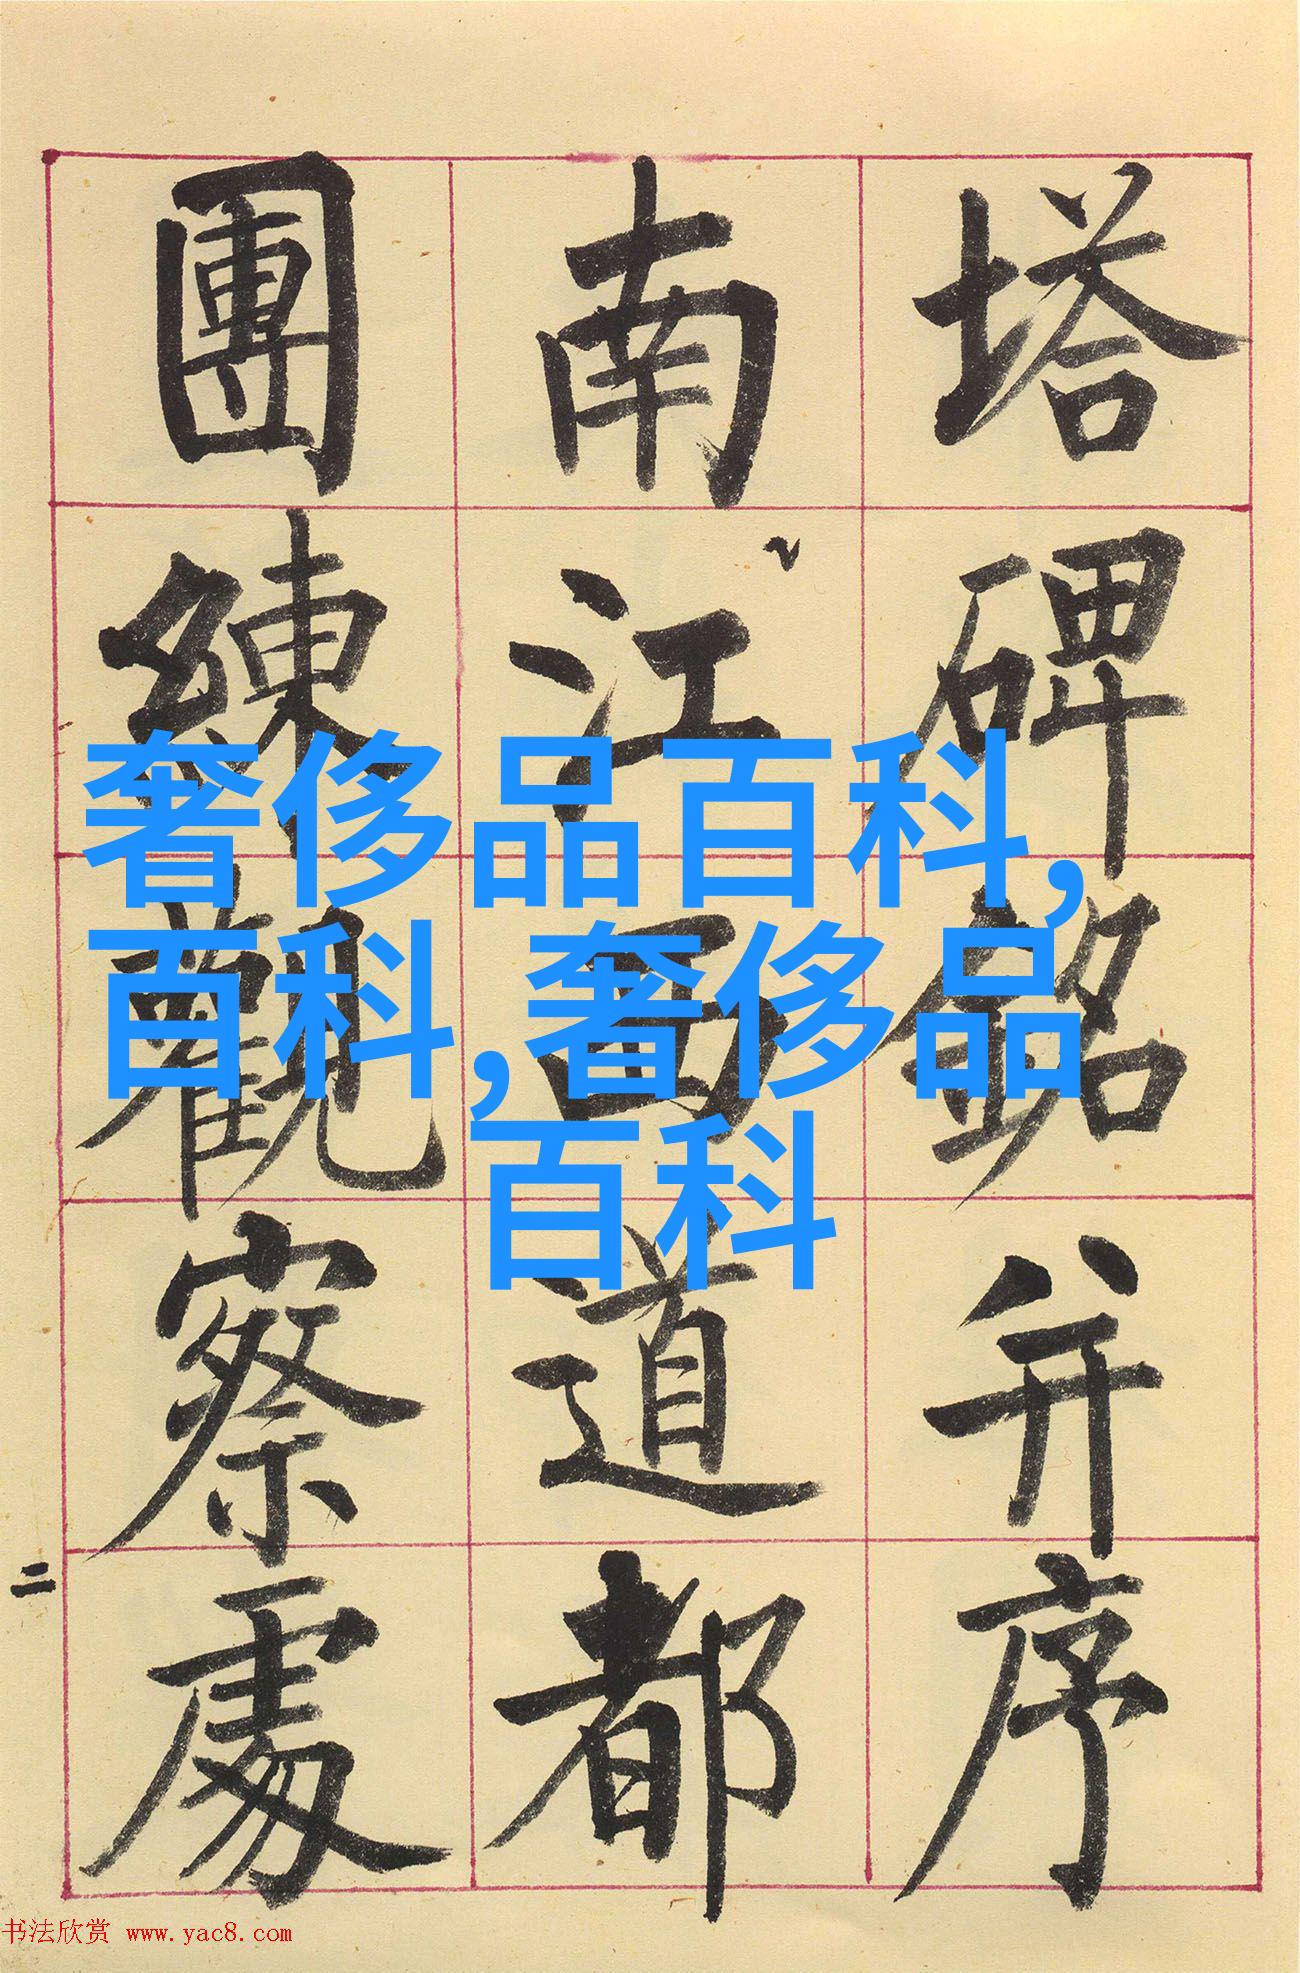 塔碑銘并序
南江西道都
團練觀察處
二
奢侈品百科,
百科,奢侈品
百科
书法欣赏 www.yac8.com